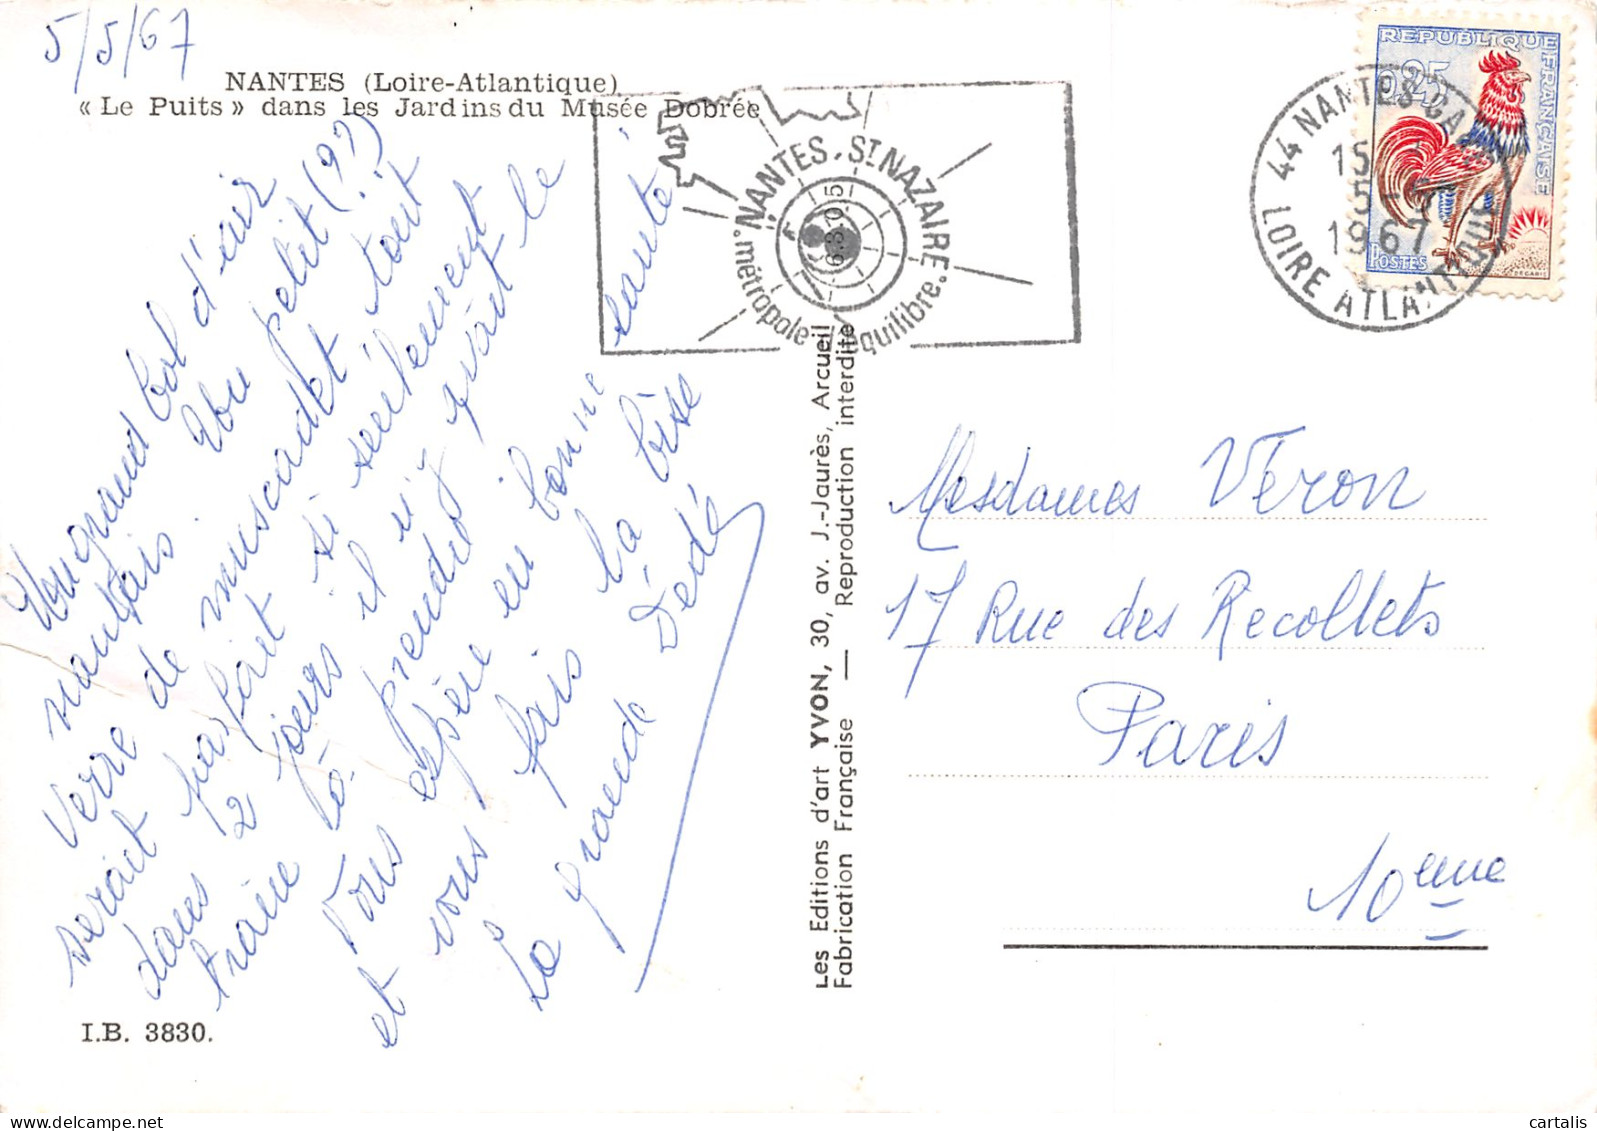 5/5/67
NANTES (Loire-Atlantique)
« Le Puits » dans les Jardins du Musée Dobrée
Un grand bol d'air
nantais. Un petit (??)
verre de muscadet tout
serait parfait si seulement
dans 2 jours il n'y avait le
traine à prendre
Vous espère en bonne santé
et vous fais la bise
La grande Dédé
I.B. 3830.
NANTES. ST NAZAIRE.
.métropole d'équilibre.
6.3.0.5
Les Editions d'art YVON, 30, av. J.-Jaurès, Arcueil
Fabrication Française — Reproduction interdite
44 NANTES GA
15
5-5
1967
LOIRE ATLANTIQUE
REPUBLIQUE FRANÇAISE
0,25
POSTES
DECARIS
Mesdames Véron
17 Rue des Recollets
Paris
10eme
cartalis